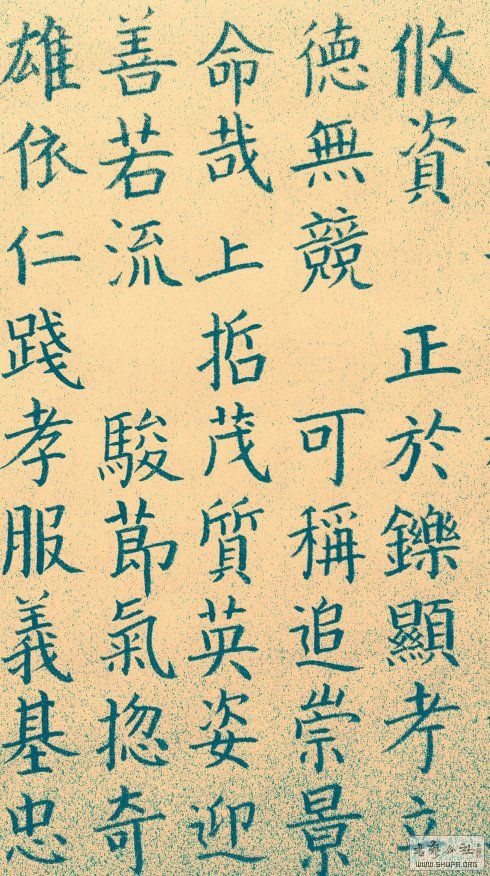 攸資 正於鑠顯考立
德無競 可稱追崇景
命哉上哲茂質英姿迎
善若流 駿節氣揔奇
雄依仁踐孝服義基忠
WWW.SHUFA.ORG